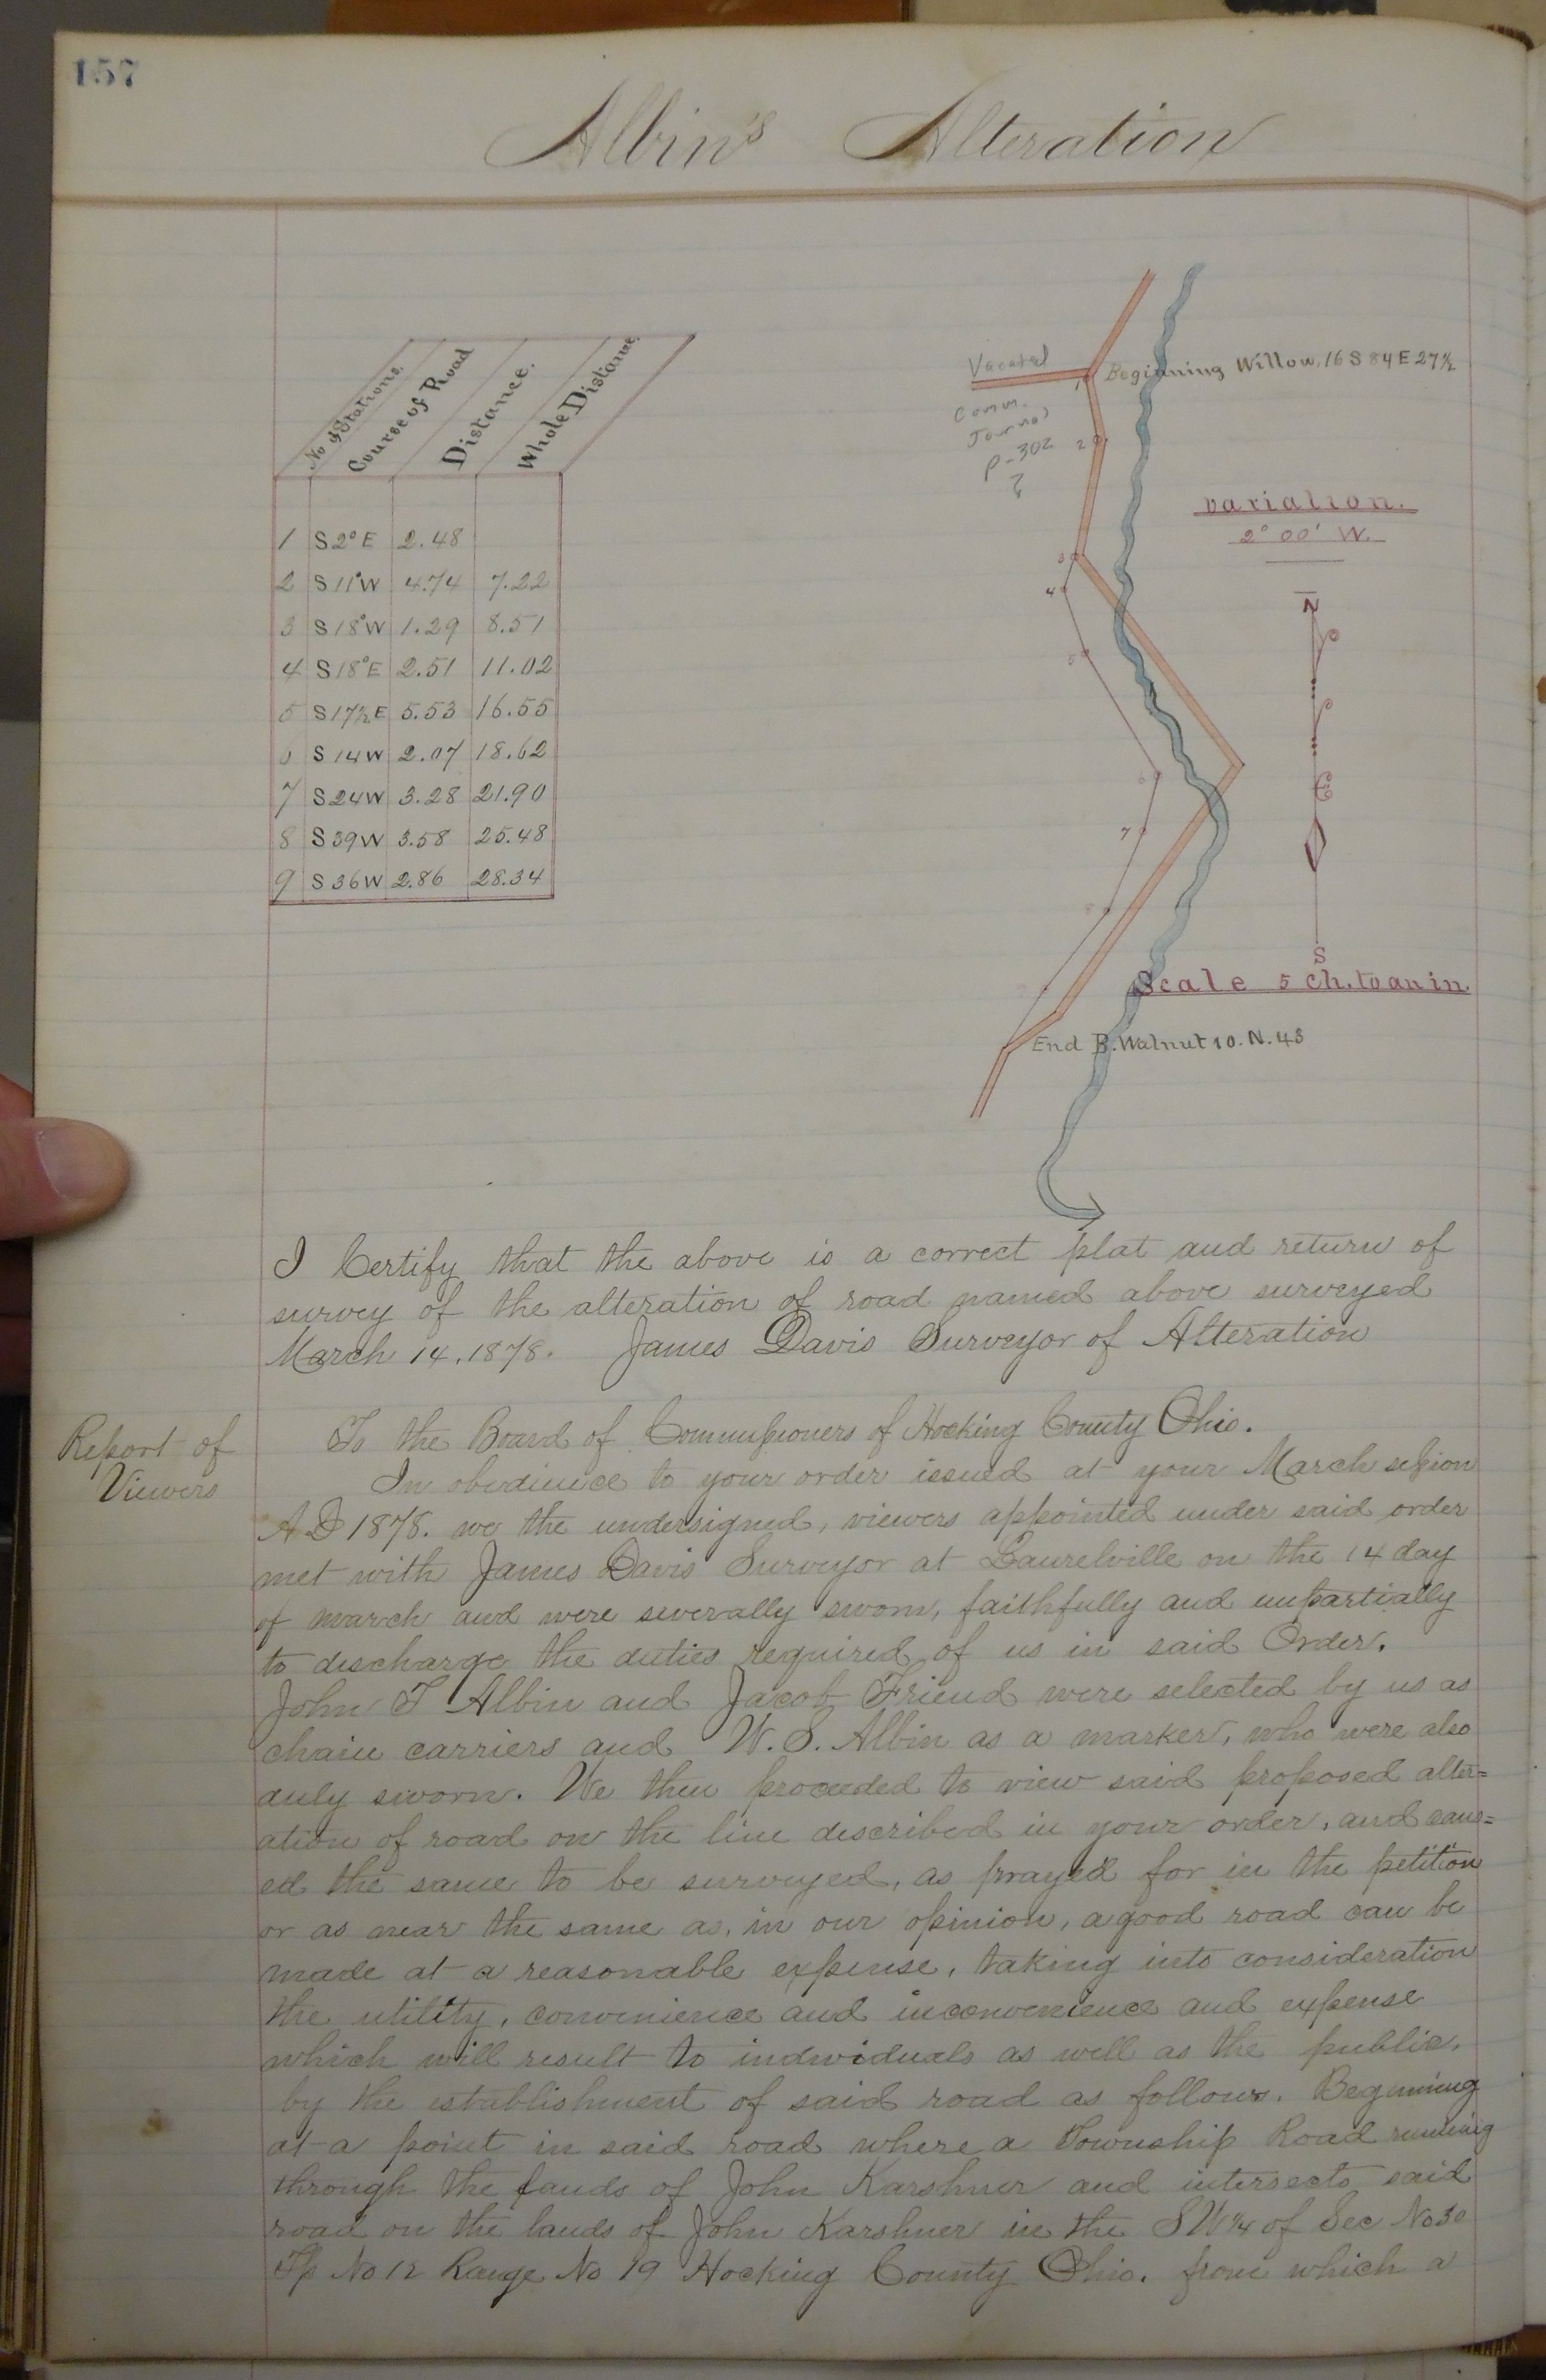 157
Albin's Alteration
No of Stations. Course of Road Distance. Whole Distance.
1 S 2° E 2.48
2 S 11° W 4.74 7.22
3 S 18° W 1.29 8.51
4 S 18° E 2.51 11.02
5 S 17½ E 5.53 16.55
6 S 14 W 2.07 18.62
7 S 24 W 3.28 21.90
8 S 39 W 3.58 25.48
9 S 36 W 2.86 28.34
Vacated
Comm.
Journal
p-302
?
1 Beginning Willow, 16 S 84 E 27½
2
3
4
5
6
7
8
variation.
2° 00' W.
N
S
Scale 5 ch. to an in.
End B. Walnut 10. N. 43
I Certify that the above is a correct plat and return of
survey of the alteration of road named above surveyed
March 14, 1878. James Davis Surveyor of Alteration
Report of
Viewers
To the Board of Commissioners of Hocking County Ohio.
In obedience to your order issued at your March session
A D 1878. we the undersigned, viewers appointed under said order
met with James Davis Surveyor at Laurelville on the 14 day
of march and were severally sworn, faithfully and impartially
to discharge the duties required of us in said Order.
John T Albin and Jacob Friend were selected by us as
chain carriers and W. S. Albin as a marker, who were also
duly sworn. We then proceeded to view said proposed alter=
ation of road on the line described in your order, and caus=
ed the same to be surveyed, as prayed for in the petition
or as near the same as, in our opinion, a good road can be
made at a reasonable expense, taking into consideration
the utility, convenience and inconvenience and expense
which will result to individuals as well as the public,
by the establishment of said road as follows. Beginning
at a point in said road where a Township Road running
through the lands of John Karshner and intersects said
road on the lands of John Karshner in the SW¼ of Sec No 30
Tp No 12 Range No 19 Hocking County Ohio. from which a